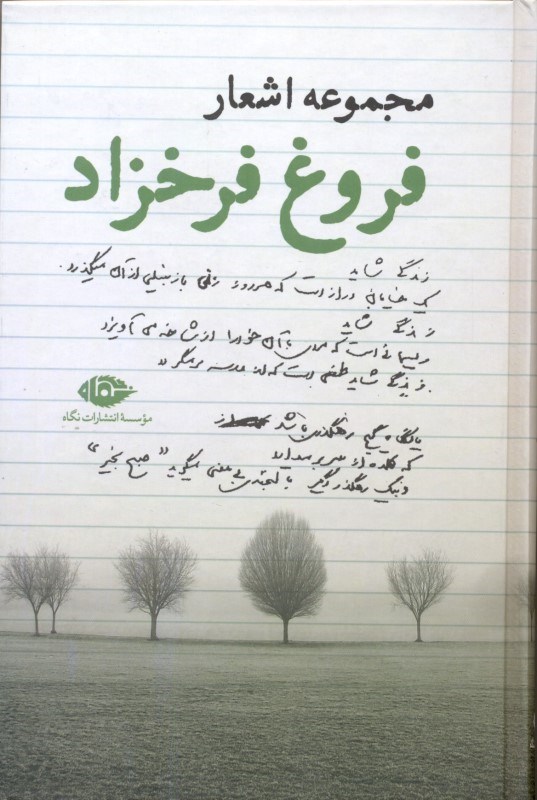 مجموعه اشعار
فروغ فرخزاد
زندگی شاید
یک خیابان دراز است که هر روز زنی با زنبیلی از آن میگذرد.
زندگی شاید
ریسمانی است که مردی با آن خود را از شاخه می آویزد
زندگی شاید طفلی است که از مدرسه بر میگردد
مؤسسهٔ انتشارات نگاه
یا نگاه گیج رهگذری باشد
که کلاه از سر بر میدارد
و به یک رهگذر دیگر با لبخندی بی معنی میگوید «صبح بخیر»